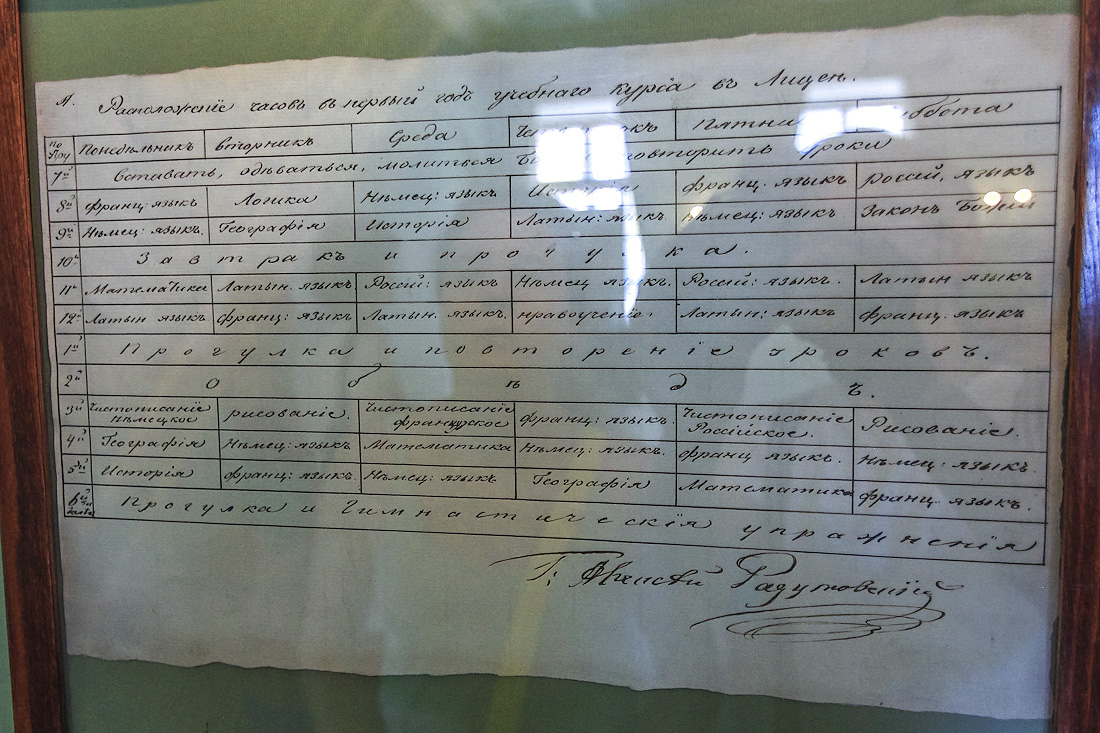 Расположенiе часовъ въ первый годъ учебнаго курса въ Лицеи.
По Понедѣльникъ Вторникъ Среда Суббота
7й Вставать, одѣваться, молиться повторить уроки
8й Франц: языкъ Логика Нѣмец: языкъ Исторiя Франц. языкъ Россiй, языкъ
9й Нѣмец: языкъ. Географiя Исторiя Латын: языкъ Нѣмец: языкъ Законъ Божiй
10й Завтракъ и прогулка.
11й Математика Латын. языкъ Россiй: языкъ Нѣмец языкъ. Россiй: языкъ. Латын языкъ
12й Латын языкъ Франц: языкъ Латын. языкъ. нравоученiе. Латын: языкъ Франц. языкъ
1й Прогулка и повторенiе уроковъ.
2й Обѣдъ.
3й Чистописанiе Нѣмецкое рисованiе. Чистописанiе французское Франц: языкъ. Чистописанiе Россiйское. Рисованiе.
4й Географiя Нѣмец: языкъ. Математика Нѣмец: языкъ. Франц языкъ. Нѣмец: языкъ.
5й Исторiя Франц: языкъ. Нѣмец: языкъ Географiя Математика Франц. языкъ.
6й Прогулка и Гимнастическiя упражненiя
Г: Алексѣй